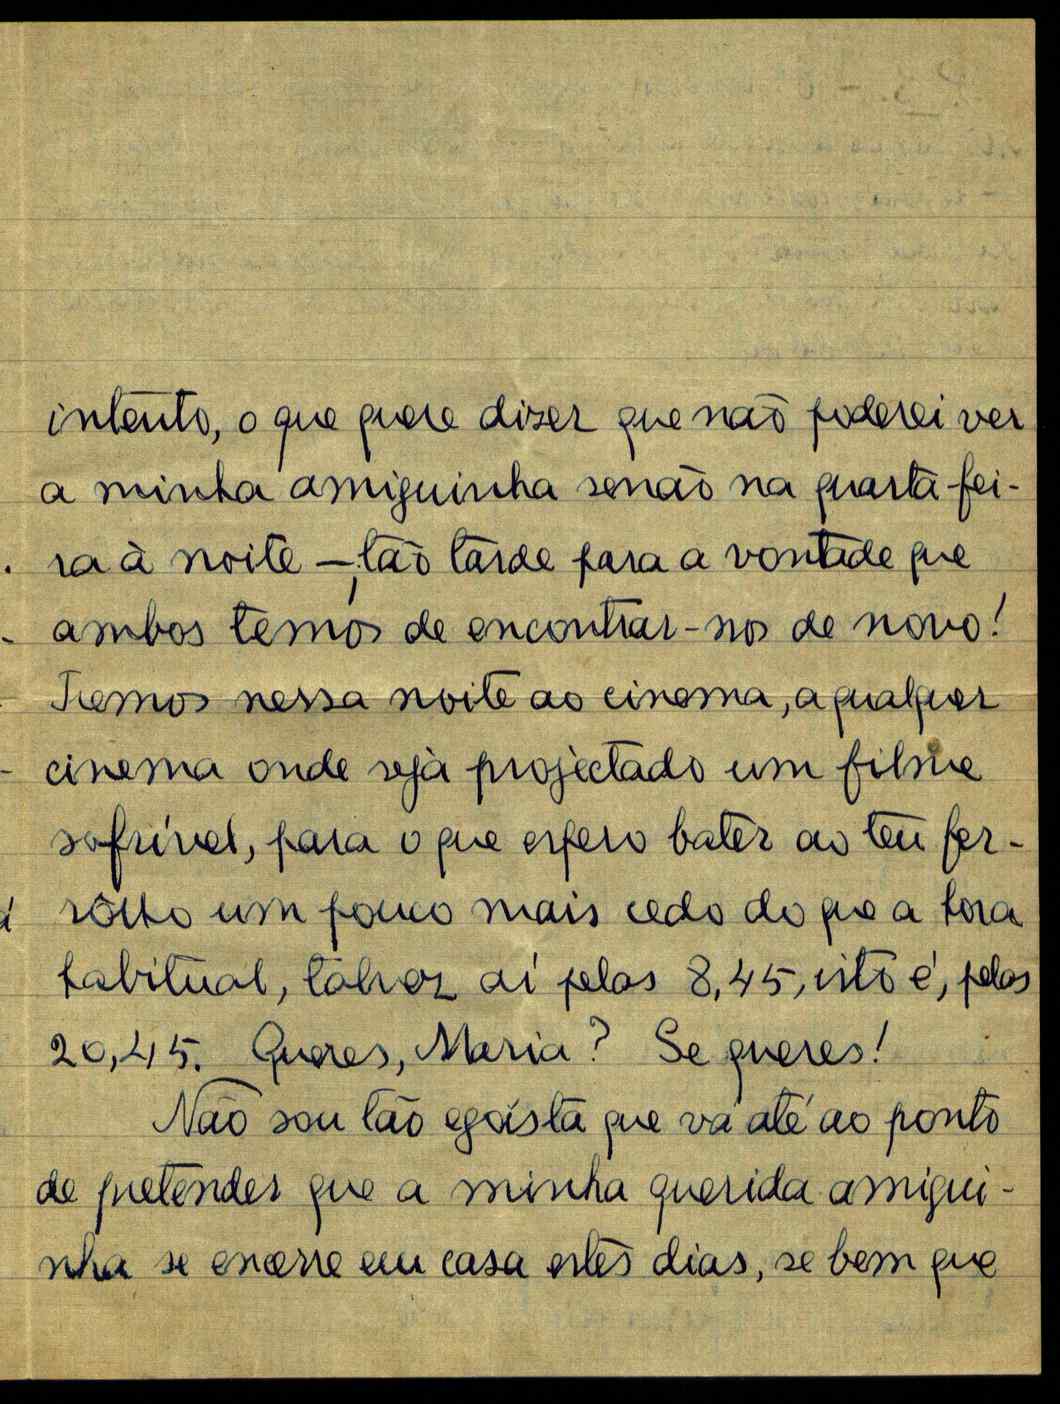 intento, o que quere dizer que não poderei ver
a minha amiguinha senão na quarta-fei-
ra à noite —, tão tarde para a vontade que
ambos temos de encontrar-nos de novo!
Iremos nessa noite ao cinema, a qualquer
cinema onde seja projectado um filme
sofrível, para o que espero bater ao teu fer-
rôlho um pouco mais cedo do que a hora
habitual, talvez aí pelas 8,45, isto é, pelas
20,45. Queres, Maria? Se queres!
Não sou tão egoísta que vá até ao ponto
de pretender que a minha querida amigui-
nha se encerre em casa estes dias, se bem que